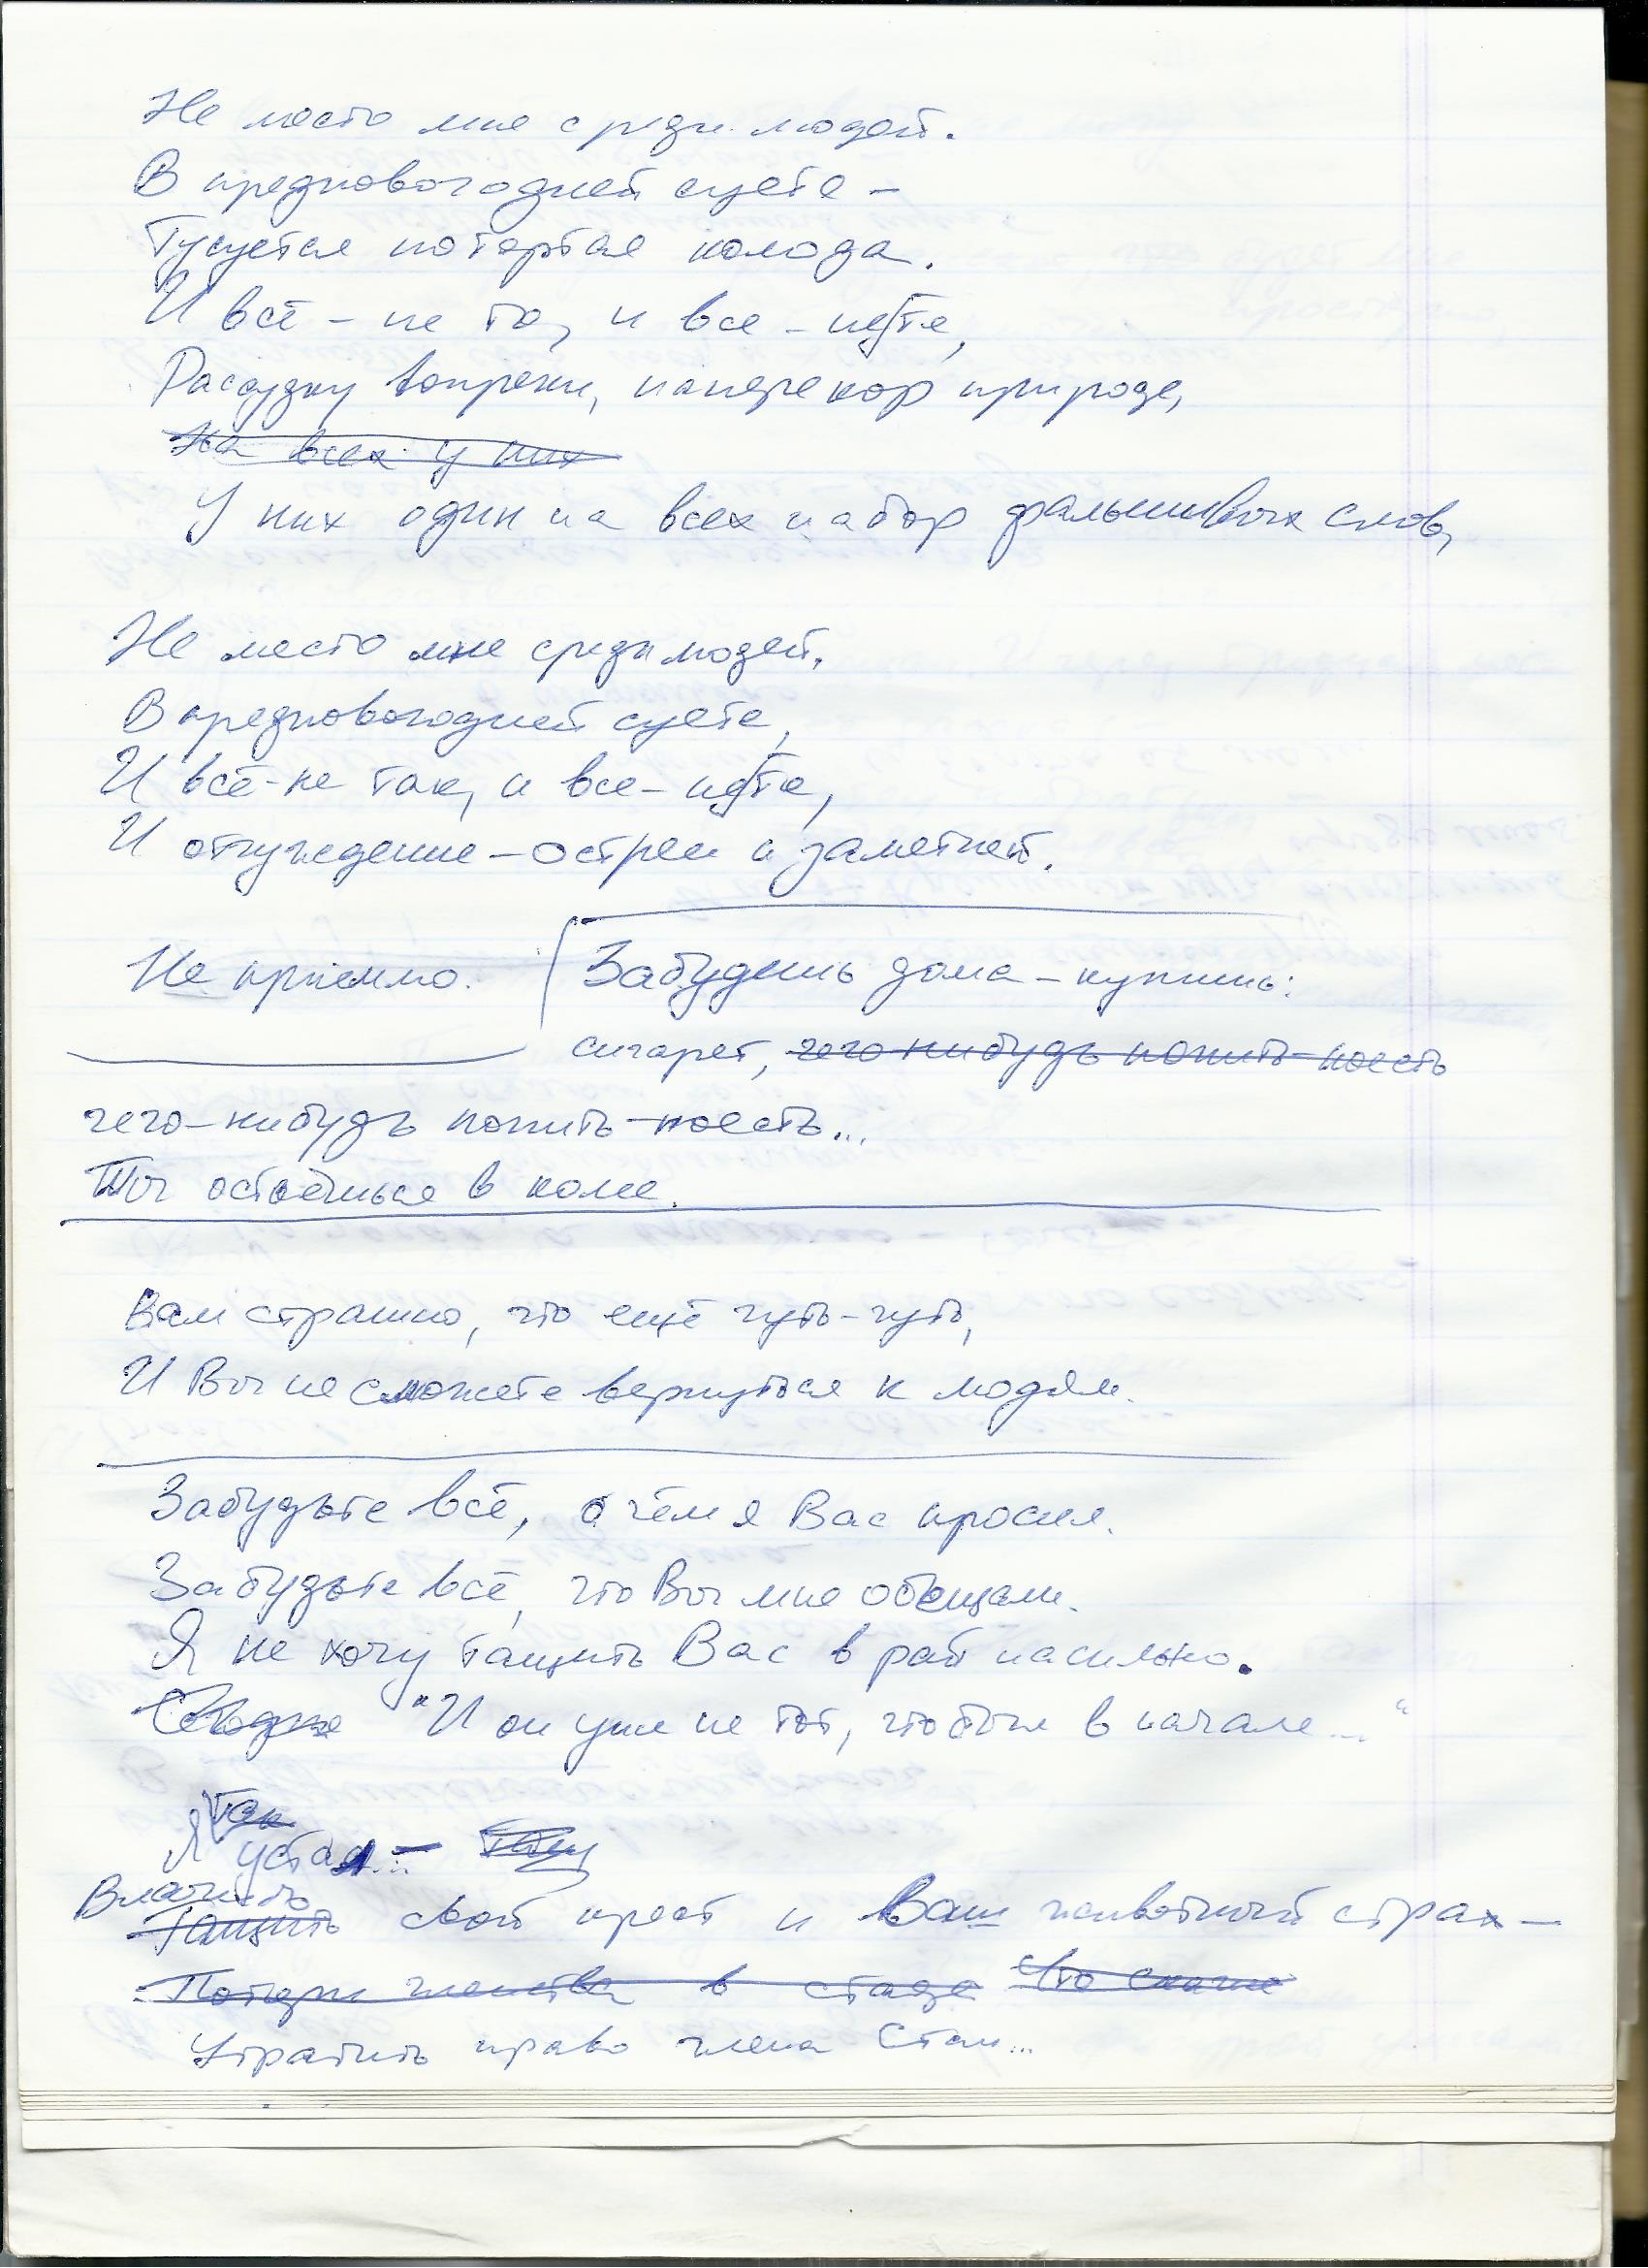 Не место мне среди людей.
В предновогодней суете –
Тусуется потёртая колода.
И всё – не то, и все – не те,
Рассудку вопреки, наперекор природе,
На всех у них
У них один на всех набор фальшивых слов,
Не место мне среди людей.
В предновогодней суете,
И всё – не так, и все – не те,
И отчуждение – острей и заметней.
Не прижимо.
Забудешь дома – купишь:
сигарет, чего-нибудь попить-поесть
чего-нибудь попить-поесть...
Ты остаёшься в коме.
Вам страшно, что ещё чуть-чуть,
И Вы не сможете вернуться к людям.
Забудьте всё, о чём я Вас просил.
Забудьте всё, что Вы мне обещали.
Я не хочу тащить Вас в рай насильно.
"И он уже не тот, что был в начале..."
так
Я устал... –
Влачить
Тащить свой крест и Ваш животный страх –
Потери членства в стаде
Утратить право члена Стаи...